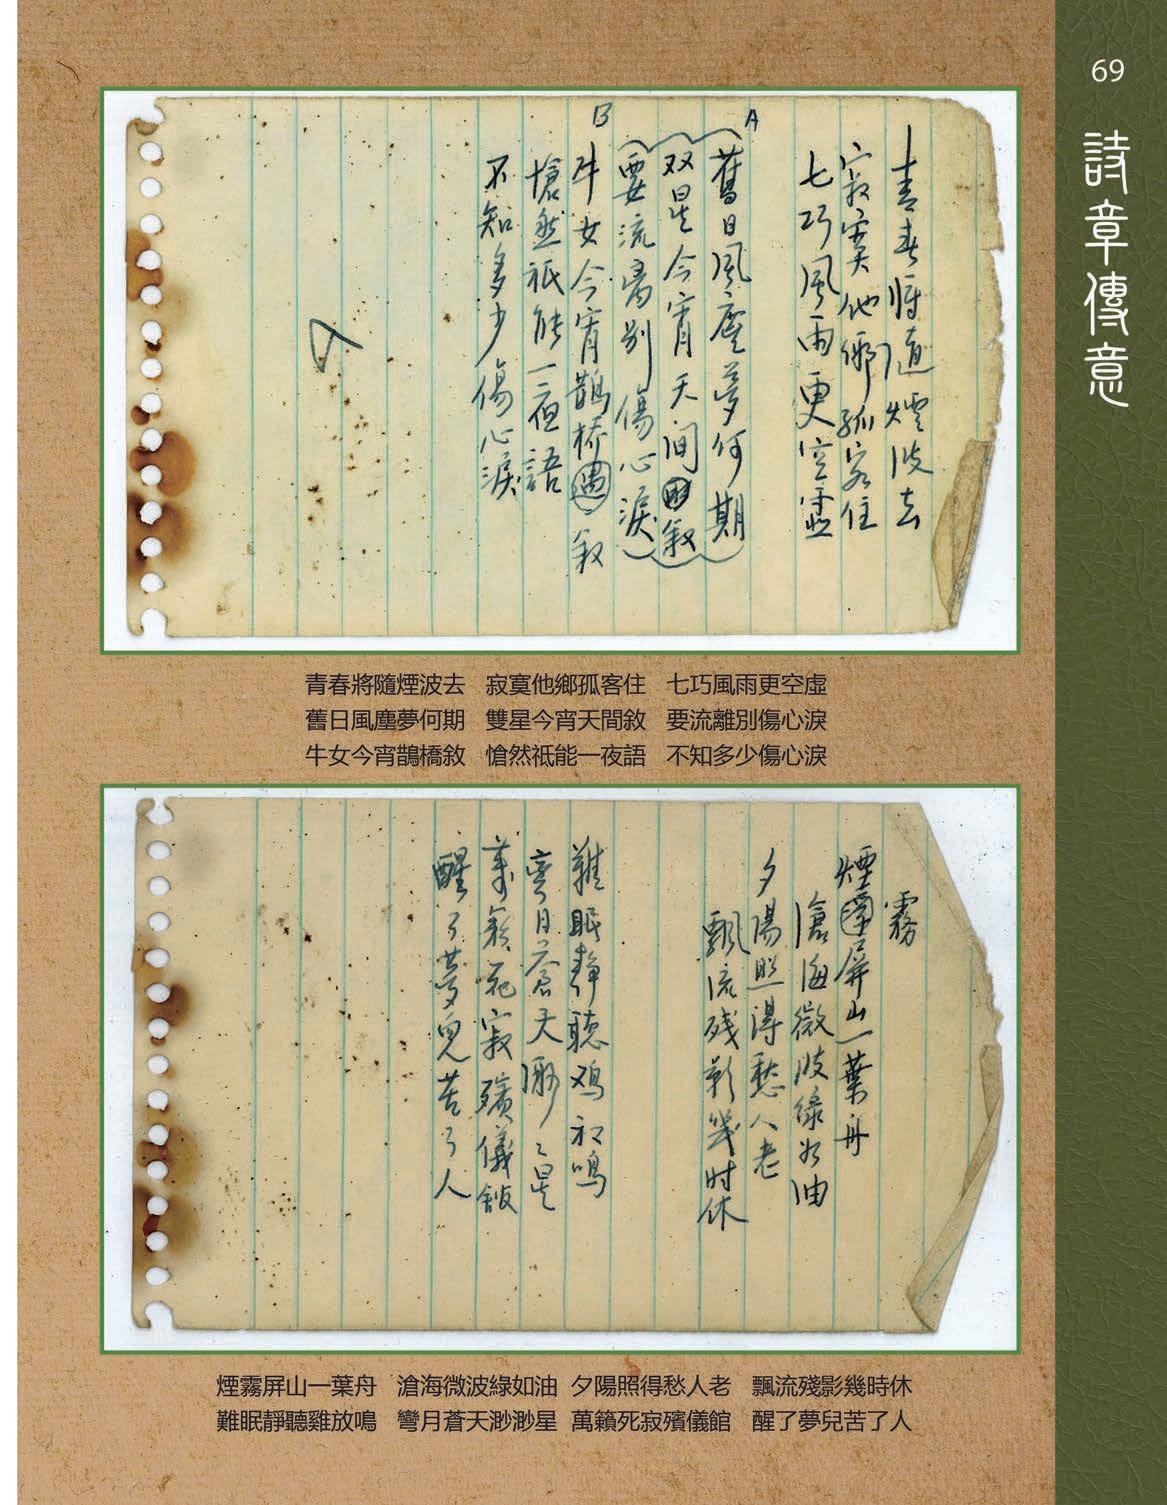 69
詩章傳意
A
B
青春將隨煙波去
寂寞他鄉孤客住
七巧風雨更空虛
舊日風塵夢何期
双星今宵天间敘
要流離別傷心淚
牛女今宵鵲橋敘
愴然祇能一夜語
不知多少傷心淚
青春將隨煙波去 寂寞他鄉孤客住 七巧風雨更空虛
舊日風塵夢何期 雙星今宵天間敘 要流離別傷心淚
牛女今宵鵲橋敘 愴然祇能一夜語 不知多少傷心淚
霧
煙屏山一葉舟
滄海微波綠如油
夕陽照得愁人老
飄流残影幾时休
難眠靜聽鸡初鳴
彎月蒼天渺々星
萬籟死寂殯儀館
醒了夢兒苦了人
煙霧屏山一葉舟 滄海微波綠如油 夕陽照得愁人老 飄流殘影幾時休
難眠靜聽雞放鳴 彎月蒼天渺渺星 萬籟死寂殯儀館 醒了夢兒苦了人